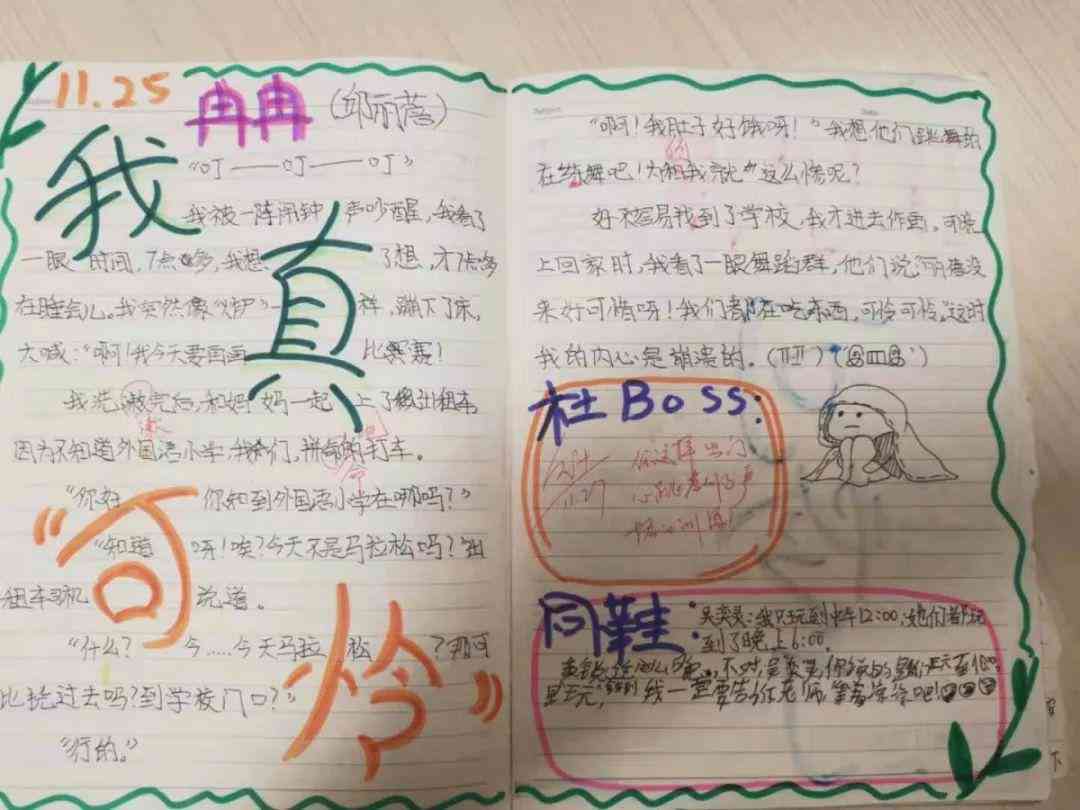 11.25
冉冉(邱丽蓓)
我真"可怜"
"叮——叮——叮"
我被一阵闹钟声吵醒,我看了
一眼时间,7点多,我想了想,才7点多
在睡会儿。我突然像"火炉"一样,蹦下了床,
大喊:"啊!我今天要画画比赛!
我洗完后,和妈妈一起上了出租车
因为不知道外国语小学,我们,拼命的打车。
"你好 你知到外国语小学在哪吗?"
"知道呀!唉?今天不是马拉松吗?"出
租车司机说道。
"什么?今……今天马拉松?那可
比绕过去吗?到学校门口?"
"行的。"
"啊!我肚子好饿呀!"我想他们跳舞的
在练舞吧!为啥我就这么惨呢?
好不容易找到了学校,我才进去作画,可晚
上回家时,我看了一眼舞蹈群,他们说丽蓓没
来好可惜呀!我们都在吃东西,可怜可怜。这时
我的内心是崩溃的。
杜Boss:
11.27
你这样出门
同鞋:
我只玩到中午12:00,她们都玩
到了晚上6:00。